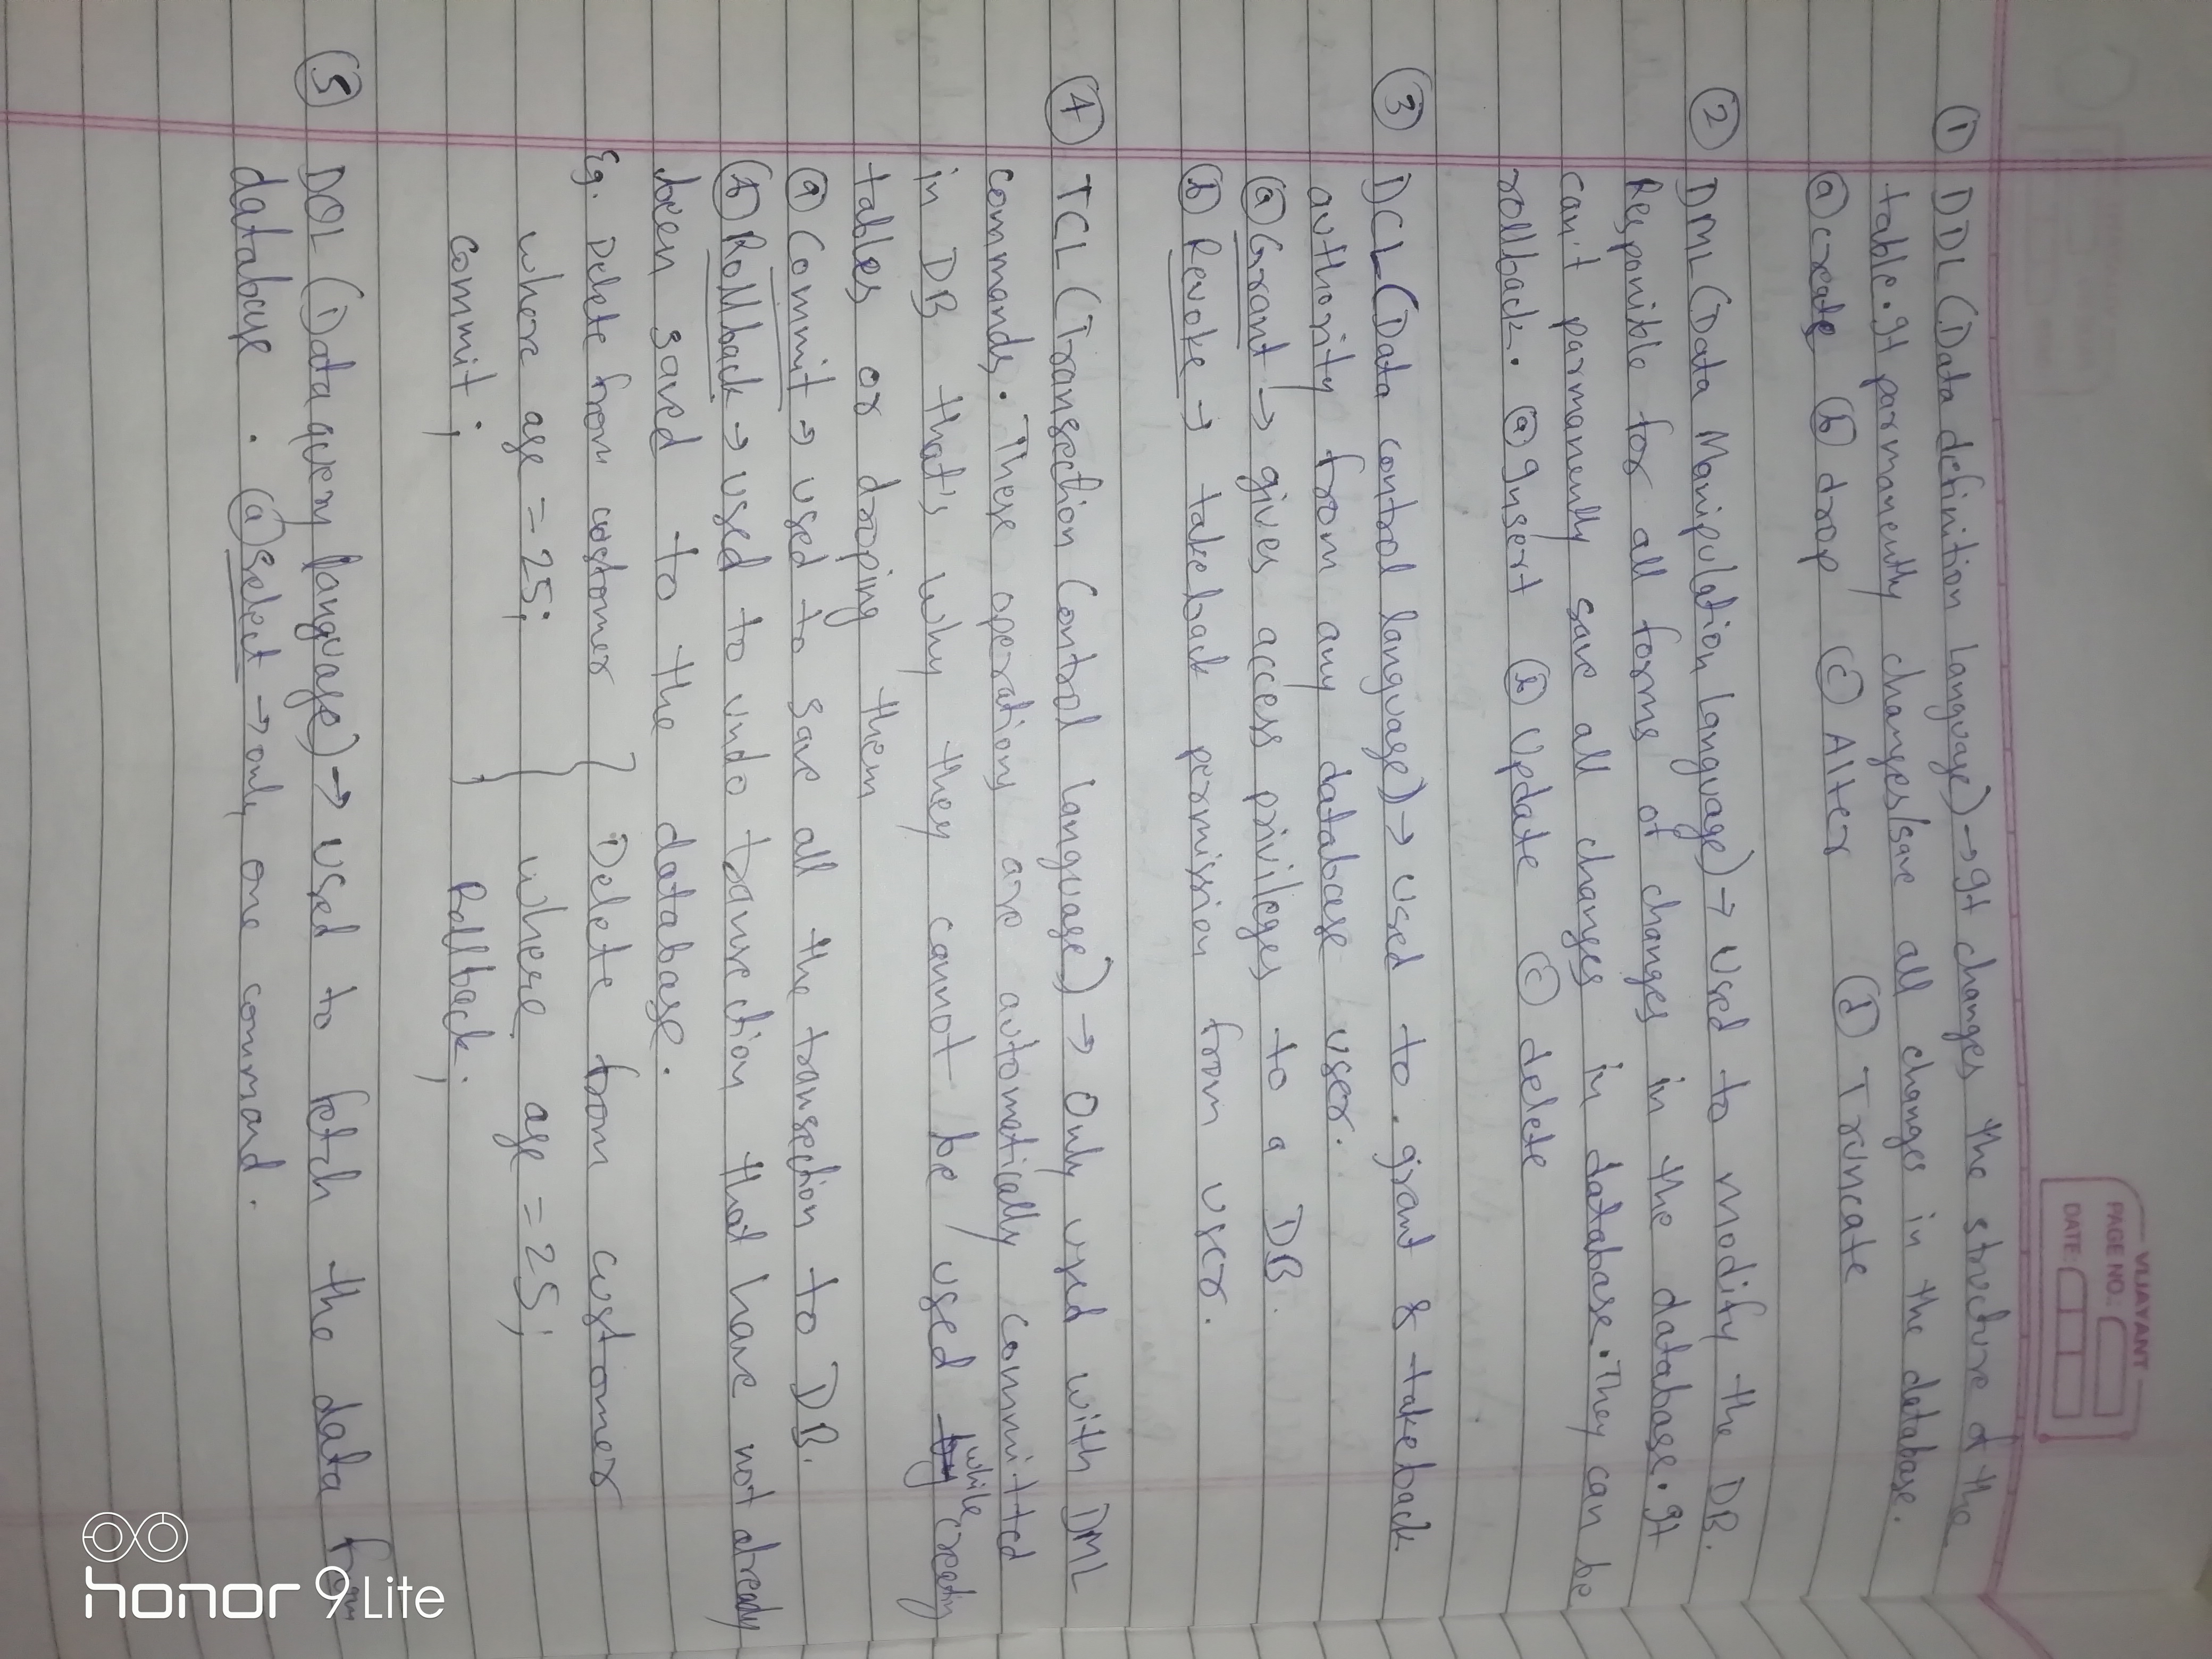 VIJAYANT
PAGE NO.:
DATE:
① DDL (Data definition Language) → It changes the structure of the
table. It parmanently changes/save all changes in the database.
ⓐ create ⓑ drop ⓒ Alter ⓓ Truncate
② DML (Data Manipulation Language) → Used to modify the DB.
Responible for all forms of changes in the database. It
can't parmanently save all changes in database. They can be
rollback. ⓐ Insert ⓑ Update ⓒ delete
③ DCL (Data control language) → used to grant & takeback
authority from any database user.
ⓐ Grant → gives access privileges to a DB.
ⓑ Revoke → takeback permission from user.
④ TCL (Transection Control Language) → Only used with DML
commands. These operations are automatically committed
in DB that's why they cannot be used while creating
tables or droping them
ⓐ Commit → used to save all the transection to DB.
ⓑ Rollback → used to undo transection that have not already
been saved to the database.
Eg. Delete from costomer } Delete from customer
where age = 25; where age = 25;
commit; Rollback;
⑤ DQL (Data query language) → used to fetch the data from
database. ⓐ select → only one command.
honor 9 Lite